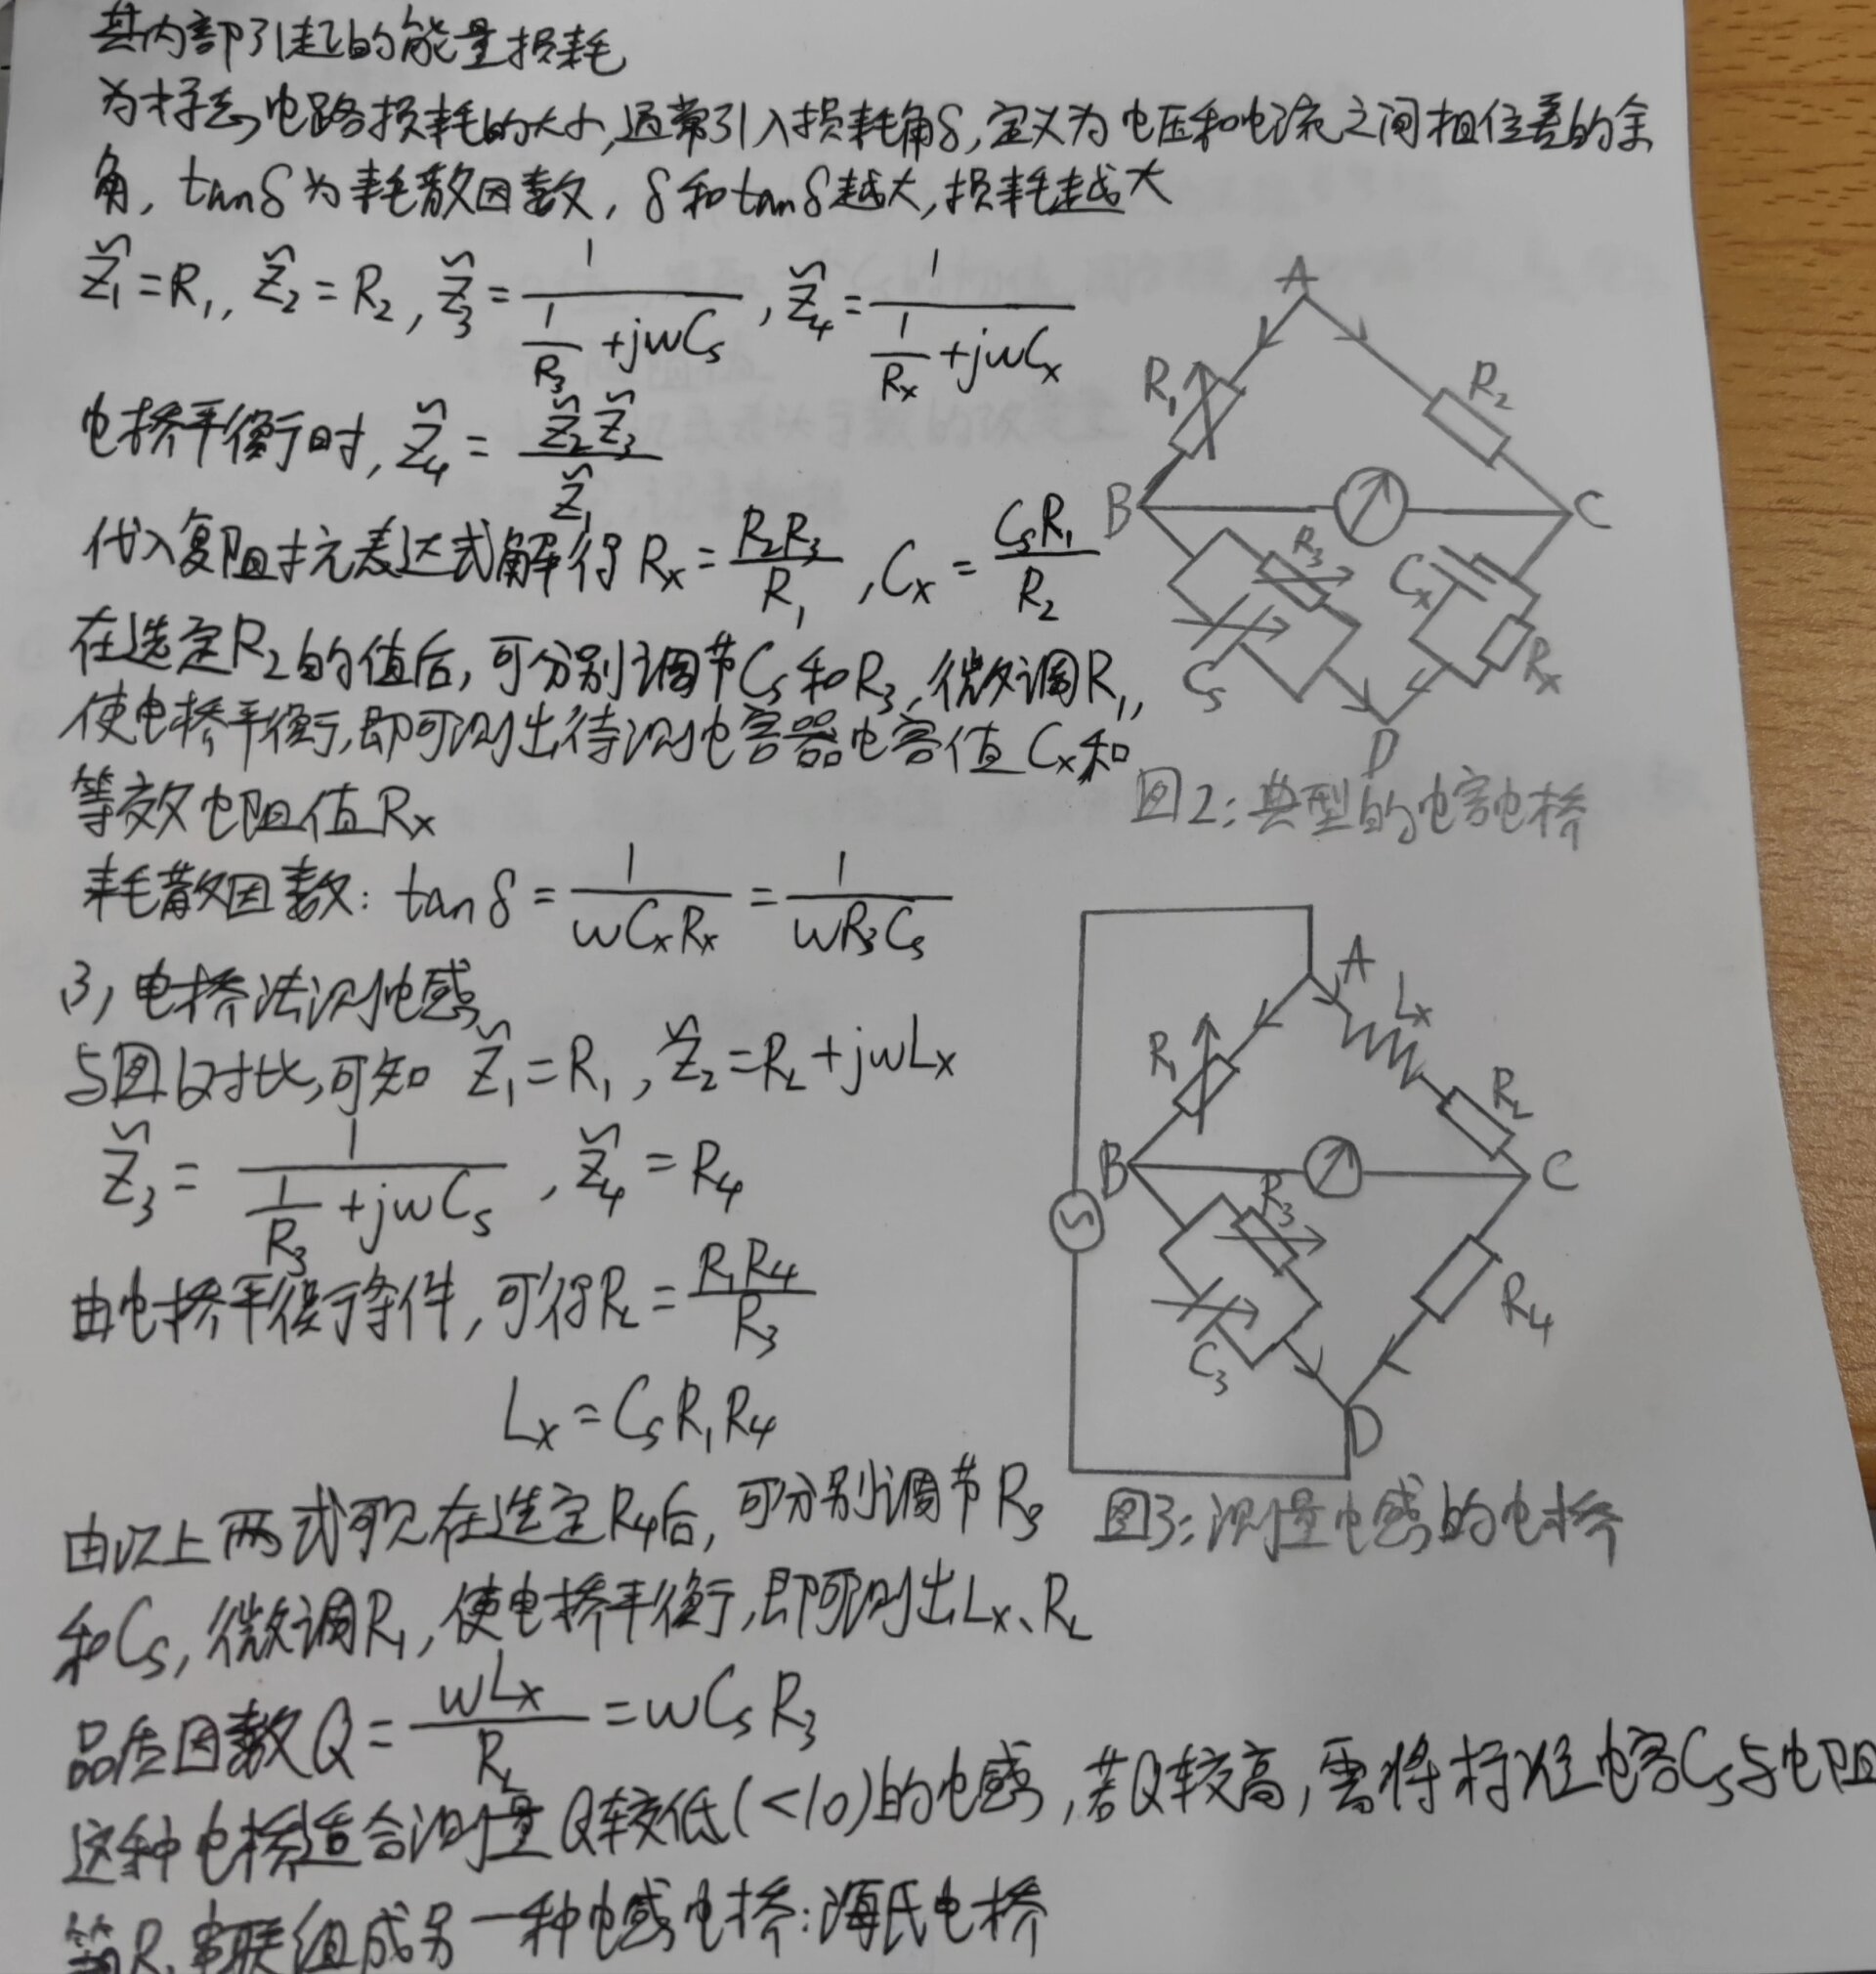 其内部引起的能量损耗
为标志电路损耗的大小,通常引入损耗角δ,定义为电压和电流之间相位差的余
角, tanδ为耗散因数, δ和tanδ越大,损耗越大
Z̃₁=R₁, Z̃₂=R₂, Z̃₃=1/(1/R₃+jωCs), Z̃₄=1/(1/Rx+jωCx)
电桥平衡时, Z̃₄=Z̃₂Z̃₃/Z̃₁
代入复阻抗表达式解得 Rx=R₂R₃/R₁, Cx=CsR₁/R₂
在选定R₂的值后,可分别调节Cs和R₃,微调R₁,
使电桥平衡,即可测出待测电容器电容值Cx和
等效电阻值Rx
耗散因数: tanδ=1/(ωCxRx)=1/(ωR₃Cs)
A
R₁
R₂
B
C
R₃
Cx
Cs
Rx
D
图2:典型的电容电桥
3,电桥法测电感
与图1对比,可知 Z̃₁=R₁, Z̃₂=RL+jωLx
Z̃₃=1/(1/R₃+jωCs), Z̃₄=R₄
由电桥平衡条件,可得RL=R₁R₄/R₃
Lx=CsR₁R₄
由以上两式可见在选定R₄后,可分别调节R₃
和Cs,微调R₁,使电桥平衡,即可测出Lx、RL
品质因数Q=ωLx/RL=ωCsR₃
这种电桥适合测量Q较低(<10)的电感,若Q较高,需将标准电容Cs与电阻
串联组成另一种电感电桥:海氏电桥
A
Lx
R₁
RL
B
C
R₃
C₃
R₄
D
图3:测量电感的电桥